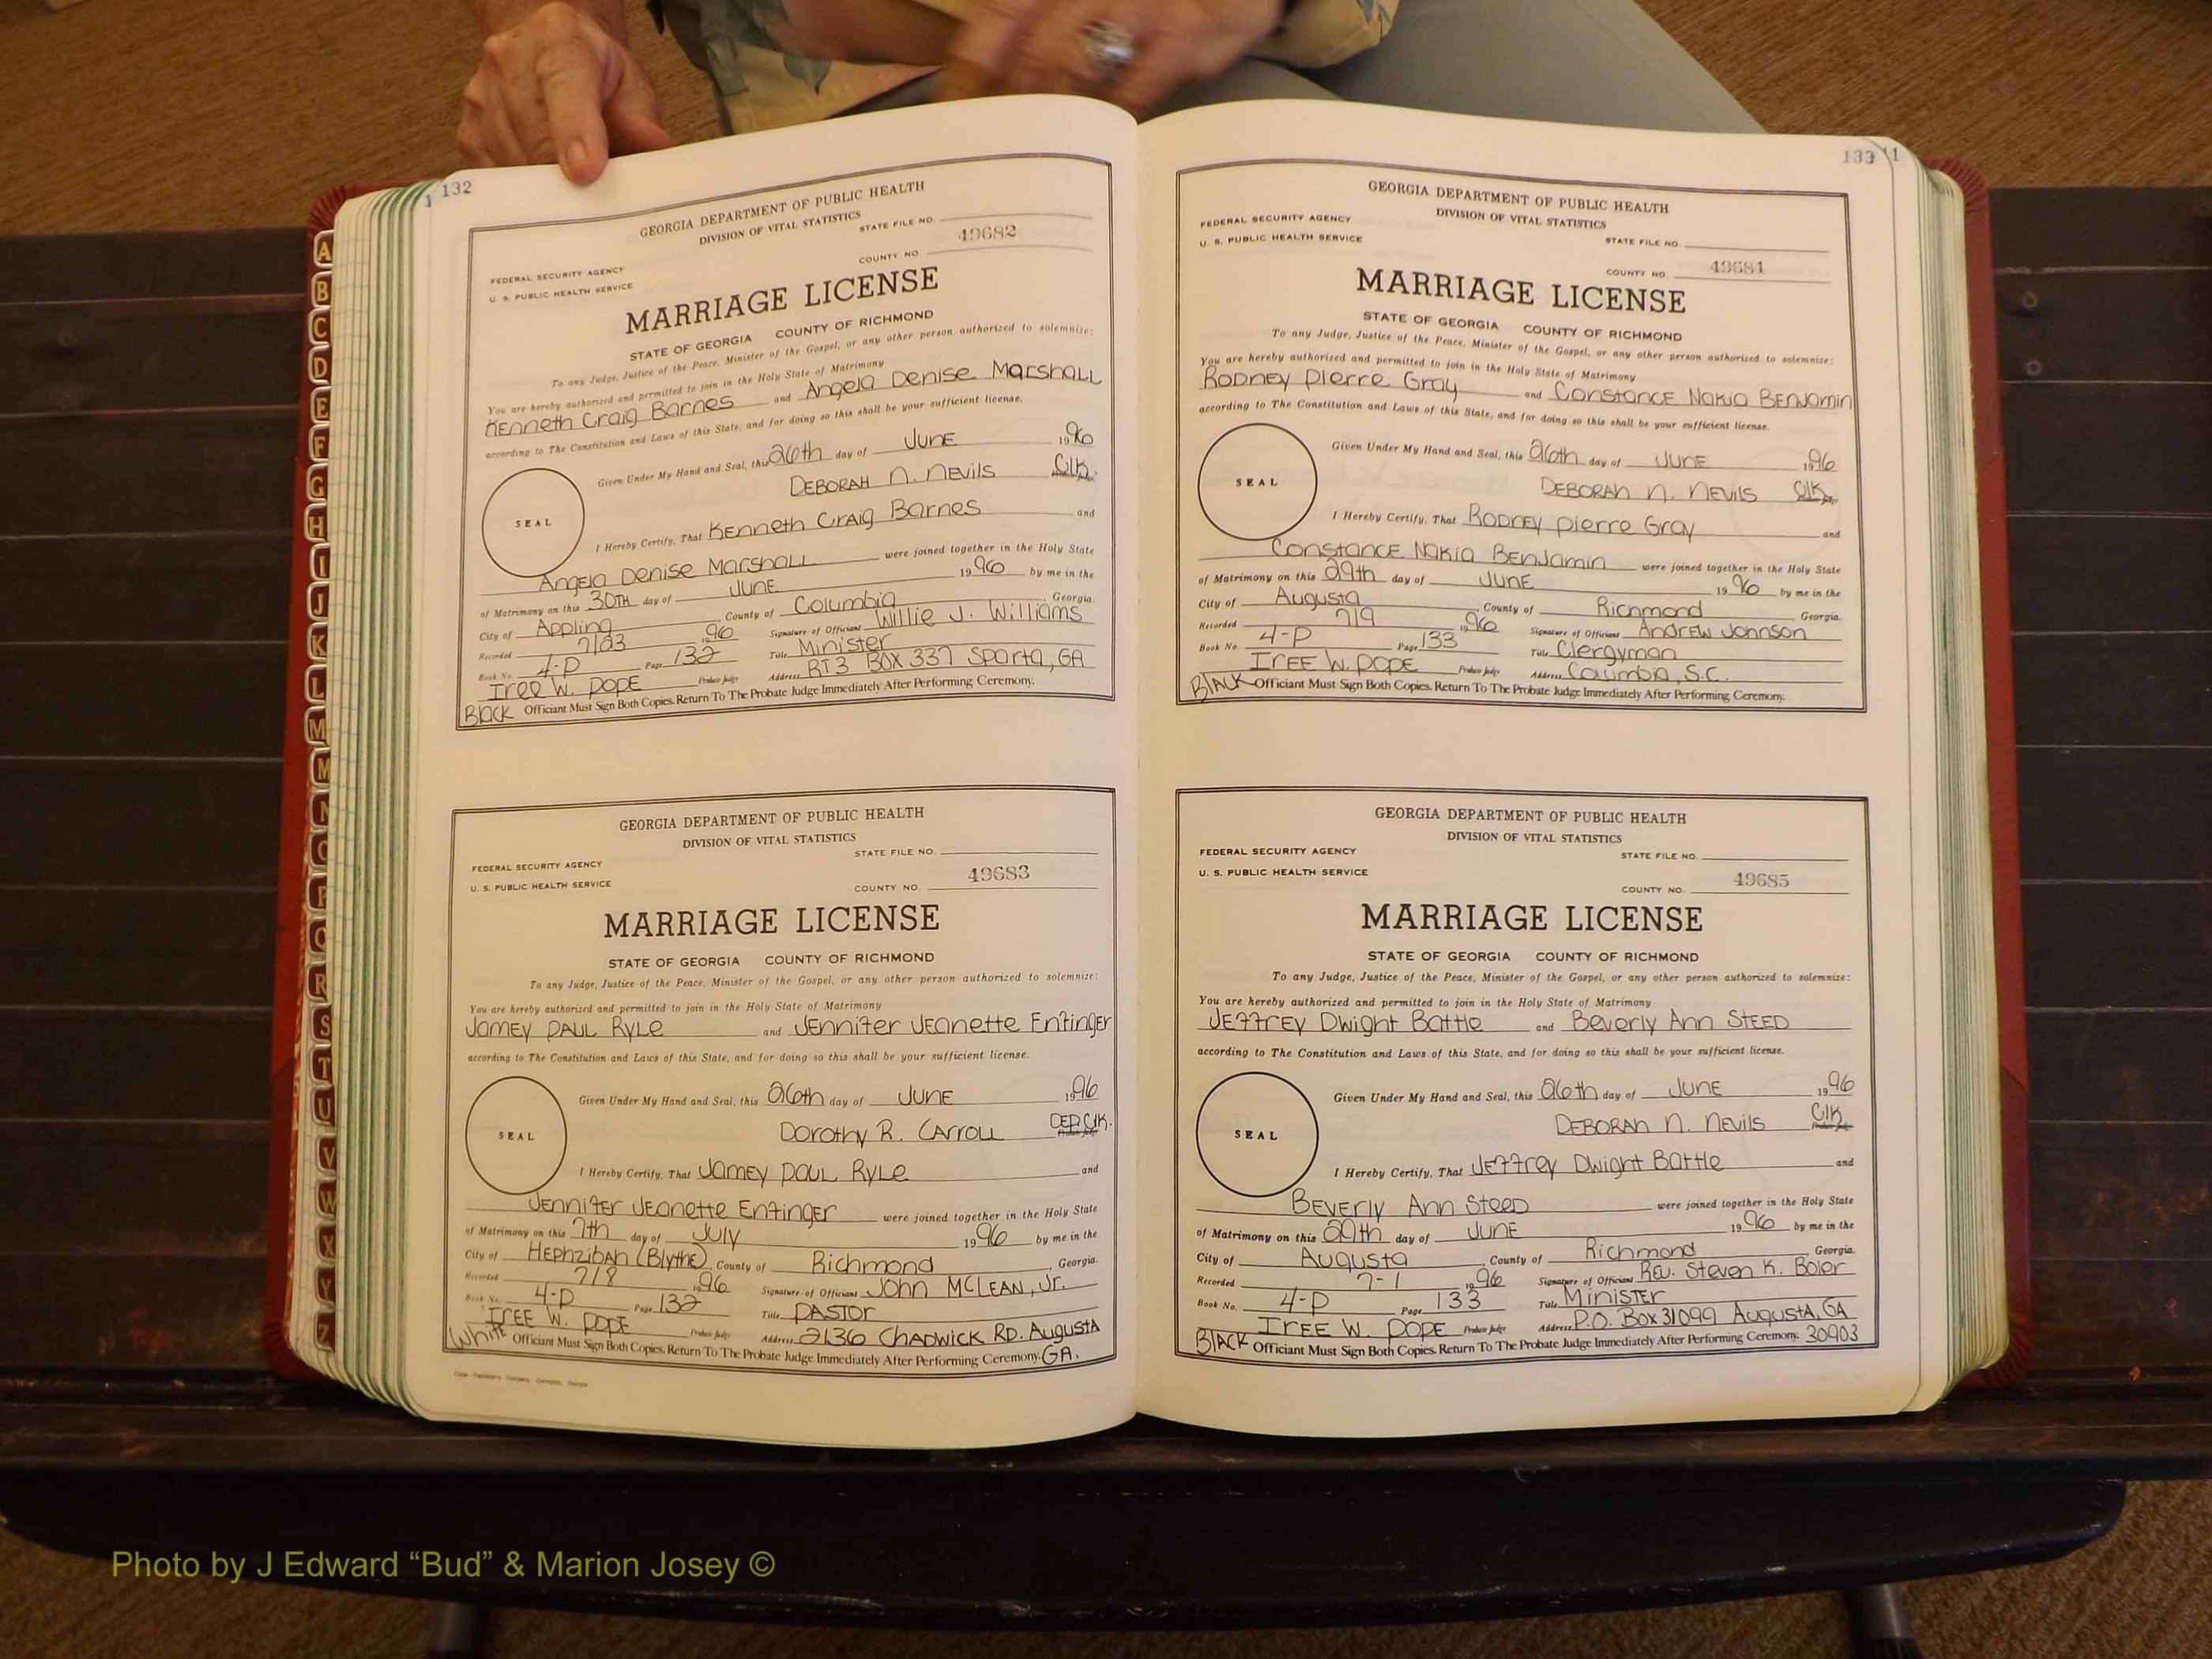 132
GEORGIA DEPARTMENT OF PUBLIC HEALTH
DIVISION OF VITAL STATISTICS
STATE FILE NO.
FEDERAL SECURITY AGENCY
U. S. PUBLIC HEALTH SERVICE
COUNTY NO. 49682
MARRIAGE LICENSE
STATE OF GEORGIA COUNTY OF RICHMOND
To any Judge, Justice of the Peace, Minister of the Gospel, or any other person authorized to solemnize:
You are hereby authorized and permitted to join in the Holy State of Matrimony
Kenneth Craig Barnes and Angela Denise Marshall
according to The Constitution and Laws of this State, and for doing so this shall be your sufficient license.
Given Under My Hand and Seal, this 26th day of June 1996
Deborah N. Nevils Clk.
SEAL
I Hereby Certify, That Kenneth Craig Barnes and
Angela Denise Marshall were joined together in the Holy State
of Matrimony on this 30th day of June 1996 by me in the
City of Appling, County of Columbia, Georgia.
Recorded 7/23 1996 Signature of Officiant Willie J. Williams
Book No. 4-P Page 132 Title Minister
Iree W. Pope Probate Judge Address RT 3 Box 337 Sparta, GA
Black Officiant Must Sign Both Copies. Return To The Probate Judge Immediately After Performing Ceremony.
GEORGIA DEPARTMENT OF PUBLIC HEALTH
DIVISION OF VITAL STATISTICS
STATE FILE NO.
FEDERAL SECURITY AGENCY
U. S. PUBLIC HEALTH SERVICE
COUNTY NO. 49683
MARRIAGE LICENSE
STATE OF GEORGIA COUNTY OF RICHMOND
To any Judge, Justice of the Peace, Minister of the Gospel, or any other person authorized to solemnize:
You are hereby authorized and permitted to join in the Holy State of Matrimony
Jamey Paul Ryle and Jennifer Jeanette Enfinger
according to The Constitution and Laws of this State, and for doing so this shall be your sufficient license.
Given Under My Hand and Seal, this 26th day of June 1996
Dorothy R. Carroll Dep. Clk.
SEAL
I Hereby Certify, That Jamey Paul Ryle and
Jennifer Jeanette Enfinger were joined together in the Holy State
of Matrimony on this 7th day of July 1996 by me in the
City of Hephzibah (Blythe), County of Richmond, Georgia.
Recorded 7/8 1996 Signature of Officiant John McLean, Jr.
Book No. 4-P Page 132 Title Pastor
Iree W. Pope Probate Judge Address 2136 Chadwick Rd. Augusta
White Officiant Must Sign Both Copies. Return To The Probate Judge Immediately After Performing Ceremony. GA.
133
GEORGIA DEPARTMENT OF PUBLIC HEALTH
DIVISION OF VITAL STATISTICS
FEDERAL SECURITY AGENCY
U. S. PUBLIC HEALTH SERVICE
STATE FILE NO.
COUNTY NO. 49684
MARRIAGE LICENSE
STATE OF GEORGIA COUNTY OF RICHMOND
To any Judge, Justice of the Peace, Minister of the Gospel, or any other person authorized to solemnize:
You are hereby authorized and permitted to join in the Holy State of Matrimony
Rodney Pierre Gray and Constance Nakia Benjamin
according to the Constitution and Laws of this State, and for doing so this shall be your sufficient license.
Given Under My Hand and Seal, this 26th day of June 1996
Deborah N. Nevils Clk.
SEAL
I Hereby Certify, That Rodney Pierre Gray and
Constance Nakia Benjamin were joined together in the Holy State
of Matrimony on this 29th day of June 1996 by me in the
City of Augusta, County of Richmond, Georgia.
Recorded 7/9 1996 Signature of Officiant Andrew Johnson
Book No. 4-P Page 133 Title Clergyman
Iree W. Pope Probate Judge Address Columbia, S.C.
Black Officiant Must Sign Both Copies. Return To The Probate Judge Immediately After Performing Ceremony.
GEORGIA DEPARTMENT OF PUBLIC HEALTH
DIVISION OF VITAL STATISTICS
FEDERAL SECURITY AGENCY
STATE FILE NO.
U. S. PUBLIC HEALTH SERVICE
COUNTY NO. 49685
MARRIAGE LICENSE
STATE OF GEORGIA COUNTY OF RICHMOND
To any Judge, Justice of the Peace, Minister of the Gospel, or any other person authorized to solemnize:
You are hereby authorized and permitted to join in the Holy State of Matrimony
Jeffrey Dwight Battle and Beverly Ann Steed
according to The Constitution and Laws of this State, and for doing so this shall be your sufficient license.
Given Under My Hand and Seal, this 26th day of June 1996
Deborah N. Nevils Clk.
SEAL
I Hereby Certify, That Jeffrey Dwight Battle and
Beverly Ann Steed were joined together in the Holy State
of Matrimony on this 29th day of June 1996 by me in the
City of Augusta, County of Richmond, Georgia.
Recorded 7-1 1996 Signature of Officiant Rev. Steven K. Boler
Book No. 4-P Page 133 Title Minister
Iree W. Pope Probate Judge Address P.O. Box 31099 Augusta, GA
Black Officiant Must Sign Both Copies. Return To The Probate Judge Immediately After Performing Ceremony. 30903
A
B
C
D
E
F
G
H
I
J
K
L
M
M
N
O
P
Q
R
S
T
U
V
W
X
Y
Z
Photo by J Edward “Bud” & Marion Josey ©